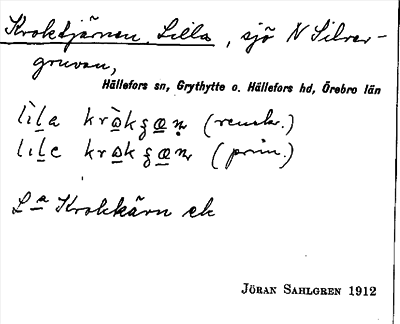 Kroktjärnen, Lilla, sjö N Silver-
gruvan,
Hällefors sn, Grythytte o. Hällefors hd, Örebro län
(renskr.)
(prim.)
Lª Krokkärn ek
JÖRAN SAHLGREN 1912